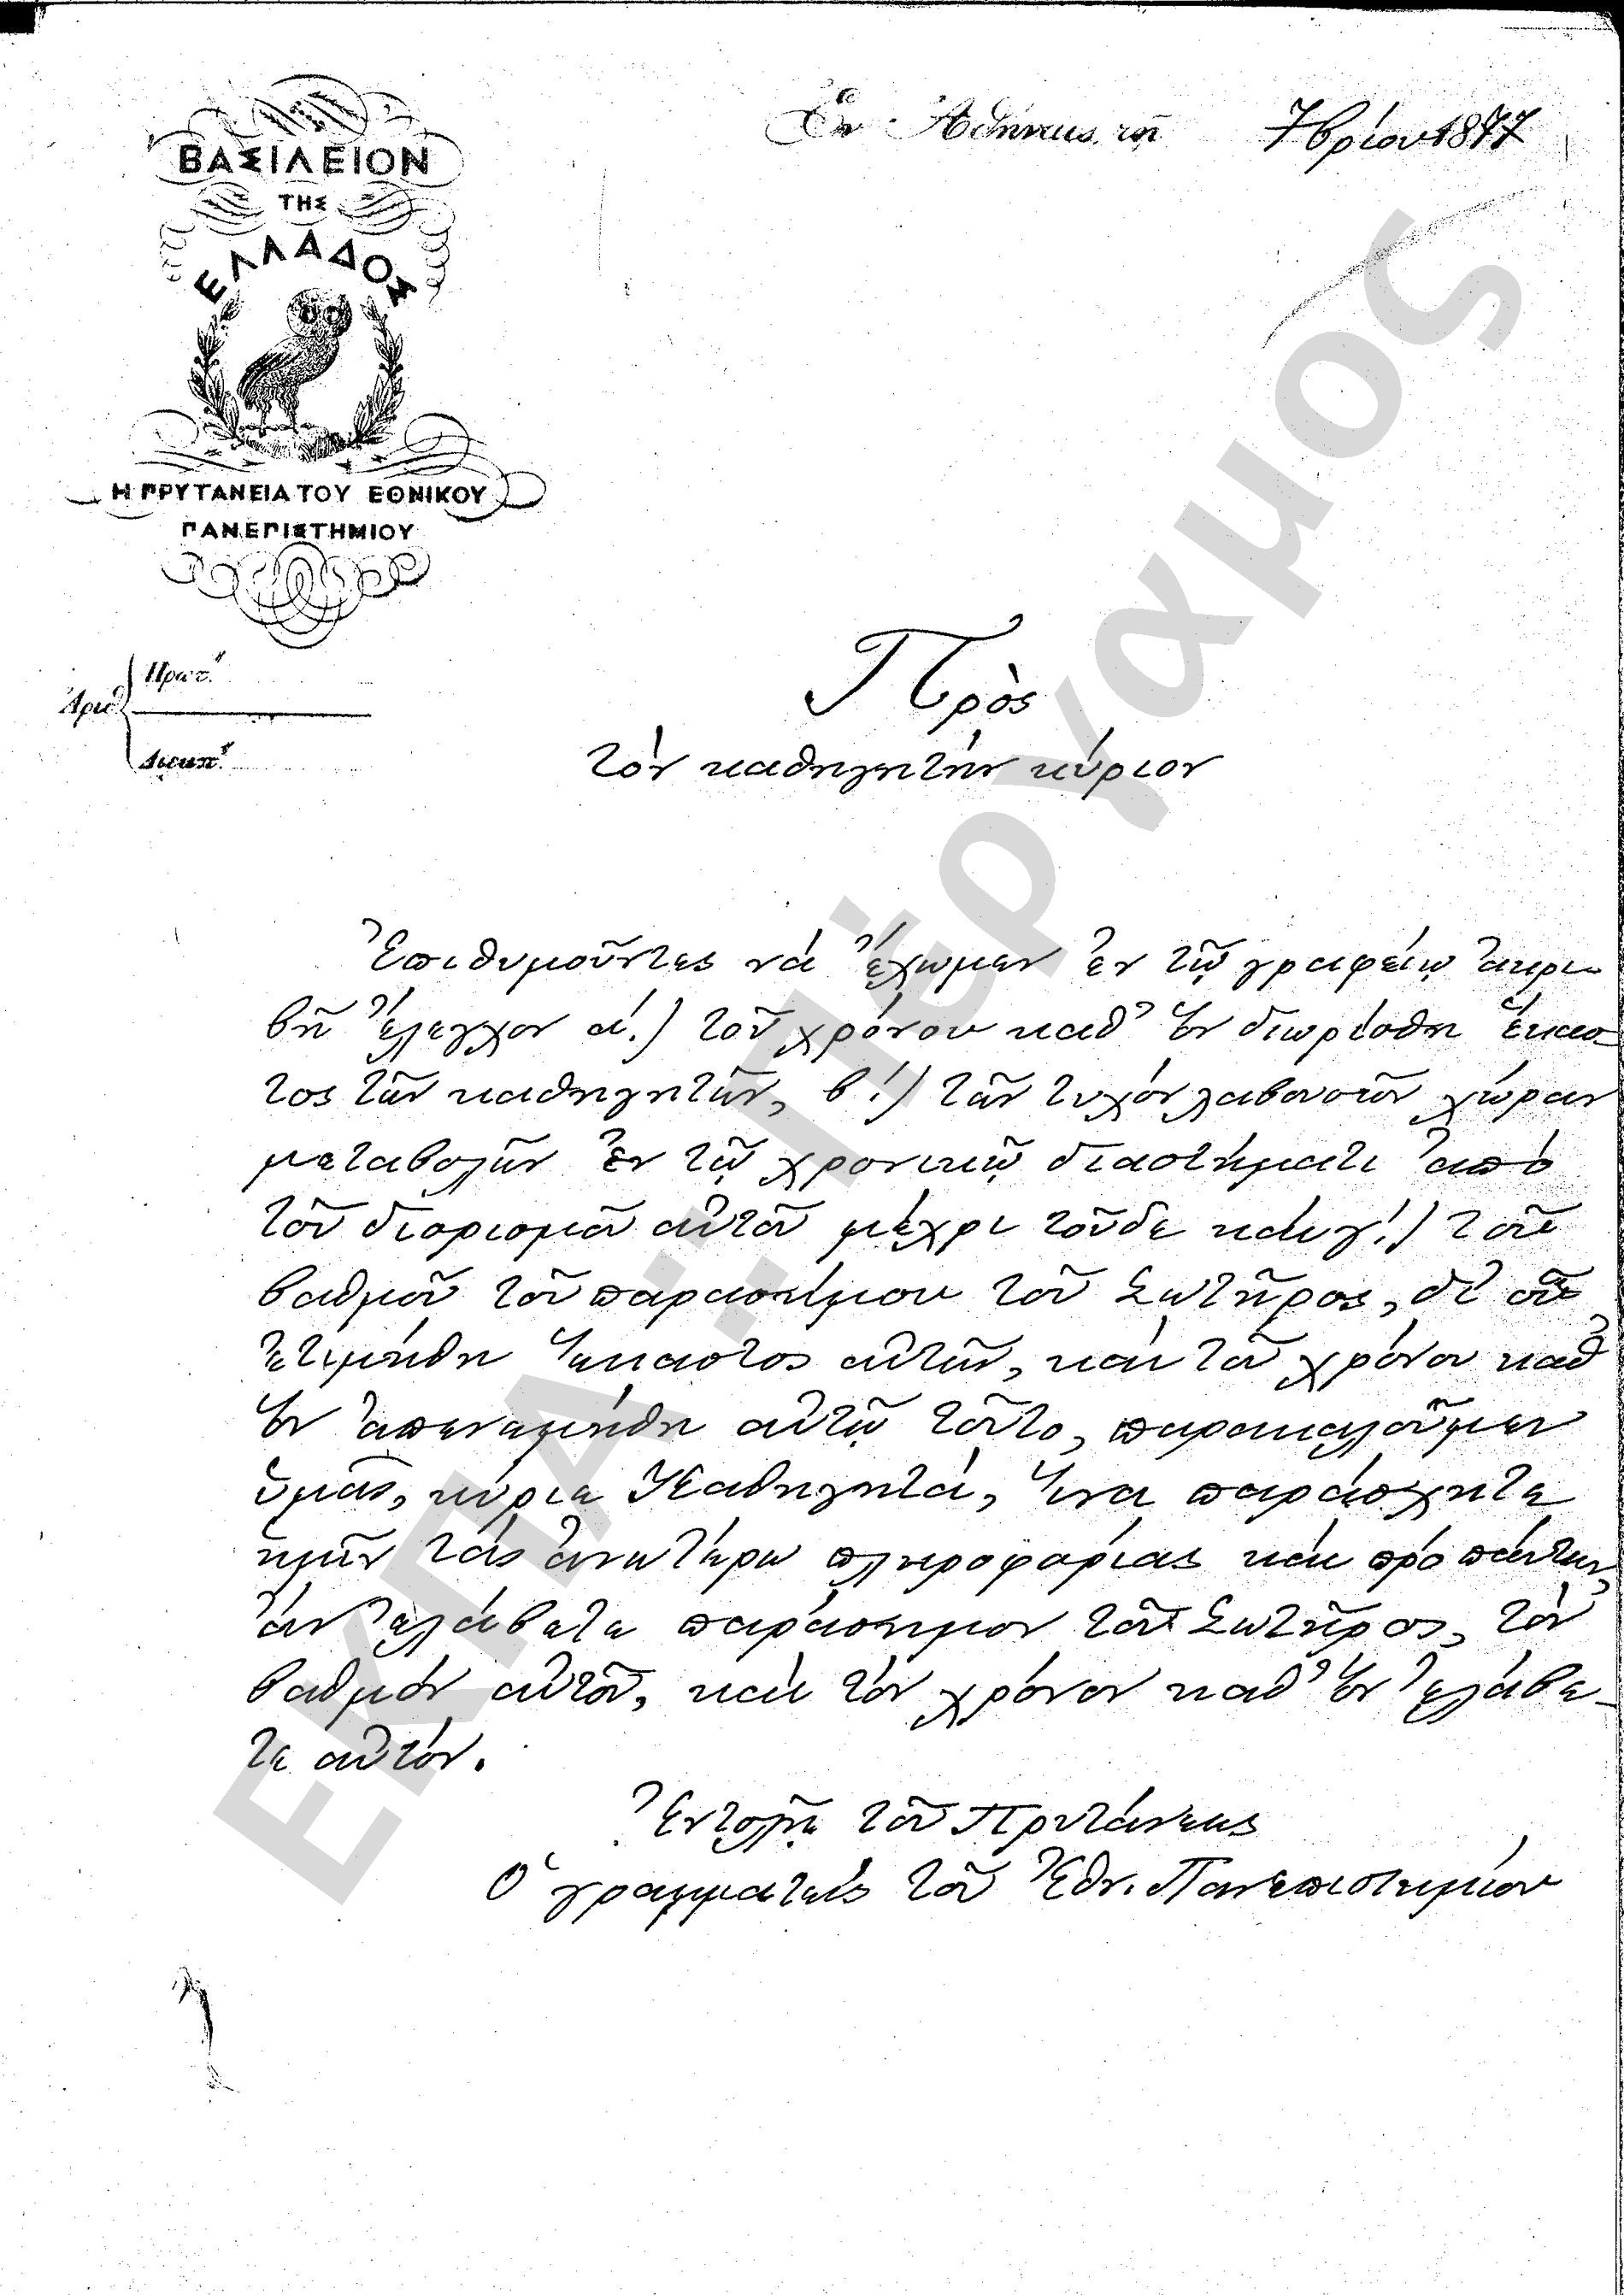 Ἐν Ἀθήναις τῇ 7βρίου 1877
ΒΑΣΙΛΕΙΟΝ
ΤΗΣ
ΕΛΛΑΔΟΣ
Η ΠΡΥΤΑΝΕΙΑ ΤΟΥ ΕΘΝΙΚΟΥ
ΠΑΝΕΠΙΣΤΗΜΙΟΥ
Πρωτ.
Ἀριθ.
Διεκπ.
Πρὸς
τὸν καθηγητὴν κύριον
Ἐπιθυμοῦντες νὰ ἔχωμεν ἐν τῷ γραφείῳ ἀκρι-
βῆ ἔλεγχον α΄.) τοῦ χρόνου καθ' ὃν διωρίσθη ἕκασ-
τος τῶν καθηγητῶν, β΄.) τῶν τυχὸν λαβουσῶν χώραν
μεταβολῶν ἐν τῷ χρονικῷ διαστήματι ἀπὸ
τοῦ διορισμοῦ αὐτοῦ μέχρι τοῦδε καὶ γ΄.) τοῦ
βαθμοῦ τοῦ παρασήμου τοῦ Σωτῆρος, δι' οὗ
ἐτιμήθη ἕκαστος αὐτῶν, καὶ τοῦ χρόνου καθ'
ὃν ἀπενεμήθη αὐτῷ τοῦτο, παρακαλοῦμεν
ὑμᾶς, κύριε Καθηγητά, ἵνα παράσχητε
ἡμῖν τὰς ἀνωτέρω πληροφορίας καὶ πρὸ πάντων,
ἂν ἐλάβετε παράσημον τοῦ Σωτῆρος, τὸν
βαθμὸν αὐτοῦ, καὶ τὸν χρόνον καθ' ὃν ἐλάβε-
τε αὐτόν.
Ἐντολῇ τοῦ Πρυτάνεως
Ὁ γραμματεὺς τοῦ Ἐθν. Πανεπιστημίου
ΕΚΠΑ.:.Πέργαμος